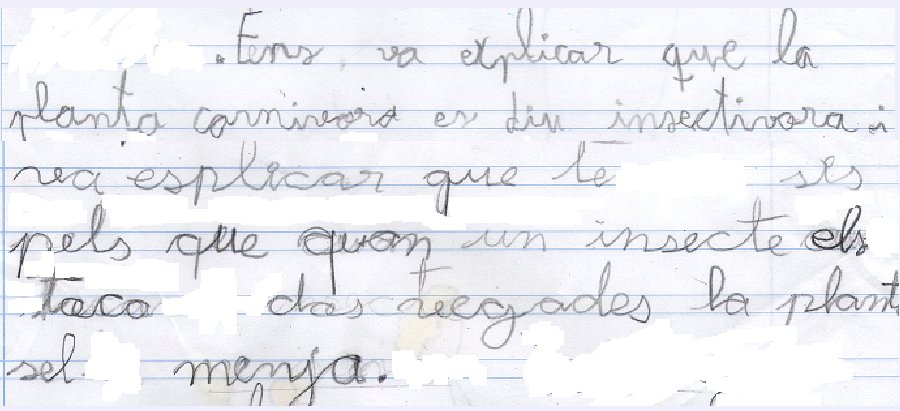 .Ens va explicar que la
planta carnivora es diu insectivora i
va esplicar que te sis
pels que quan un insecte els
toca dos vegades la plant
sel menja.